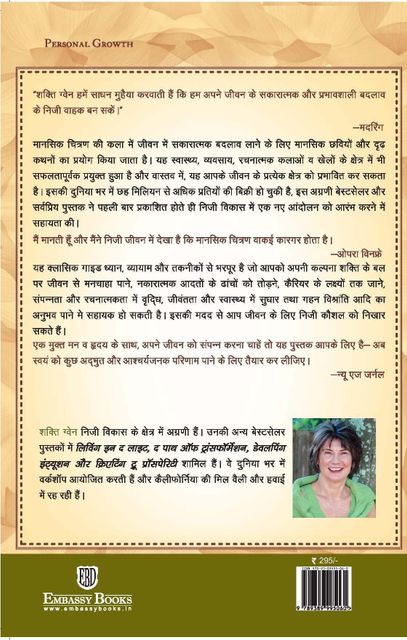 PERSONAL GROWTH
"शक्ति ग्वेन हमें साधन मुहैया करवाती हैं कि हम अपने जीवन के सकारात्मक और प्रभावशाली बदलाव
के निजी वाहक बन सकें।"
—मदरिंग
मानसिक चित्रण की कला में जीवन में सकारात्मक बदलाव लाने के लिए मानसिक छवियों और दृढ़
कथनों का प्रयोग किया जाता है। यह स्वास्थ्य, व्यवसाय, रचनात्मक कलाओं व खेलों के क्षेत्र में भी
सफलतापूर्वक प्रयुक्त हुआ है और वास्तव में, यह आपके जीवन के प्रत्येक क्षेत्र को प्रभावित कर सकता
है। इसकी दुनिया भर में छह मिलियन से अधिक प्रतियों की बिक्री हो चुकी है, इस अग्रणी बेस्टसेलर और
सर्वप्रिय पुस्तक ने पहली बार प्रकाशित होते ही निजी विकास में एक नए आंदोलन को आरंभ करने में
सहायता की।
मैं मानती हूँ और मैंने निजी जीवन में देखा है कि मानसिक चित्रण वाकई कारगर होता है।
—ओपरा विनफ्रे
यह क्लासिक गाइड ध्यान, व्यायाम और तकनीकों से भरपूर है जो आपको अपनी कल्पना शक्ति के बल
पर जीवन से मनचाहा पाने, नकारात्मक आदतों के ढांचों को तोड़ने, कैरियर के लक्ष्यों तक जाने,
संपन्नता और रचनात्मकता में वृद्धि, जीवंतता और स्वास्थ्य में सुधार तथा गहन विश्रांति आदि का
अनुभव पाने मे सहायक हो सकती है। इसकी मदद से आप जीवन के लिए निजी कौशल को निखार
सकते हैं।
एक मुक्त मन व हृदय के साथ, अपने जीवन को संपन्न करना चाहें तो यह पुस्तक आपके लिए है— अब
स्वयं को कुछ अद्भुत और आश्चर्यजनक परिणाम पाने के लिए तैयार कर लीजिए।
—न्यू एज जर्नल
शक्ति ग्वेन निजी विकास के क्षेत्र में अग्रणी हैं। उनकी अन्य बेस्टसेलर
पुस्तकों में लिविंग इन द लाइट, द पाथ ऑफ ट्रांसफॉर्मेशन, डेवलपिंग
इंट्यूशन और क्रिएटिंग ट्रू प्रॉसपेरिटी शामिल हैं। वे दुनिया भर में
वर्कशॉप आयोजित करती हैं और कैलीफोर्निया की मिल वैली और हवाई
में रह रही हैं।
₹ 295/-
EBD
EMBASSY BOOKS
www.embassybooks.in
9789389995060